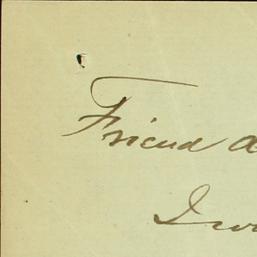 Friend a
I w